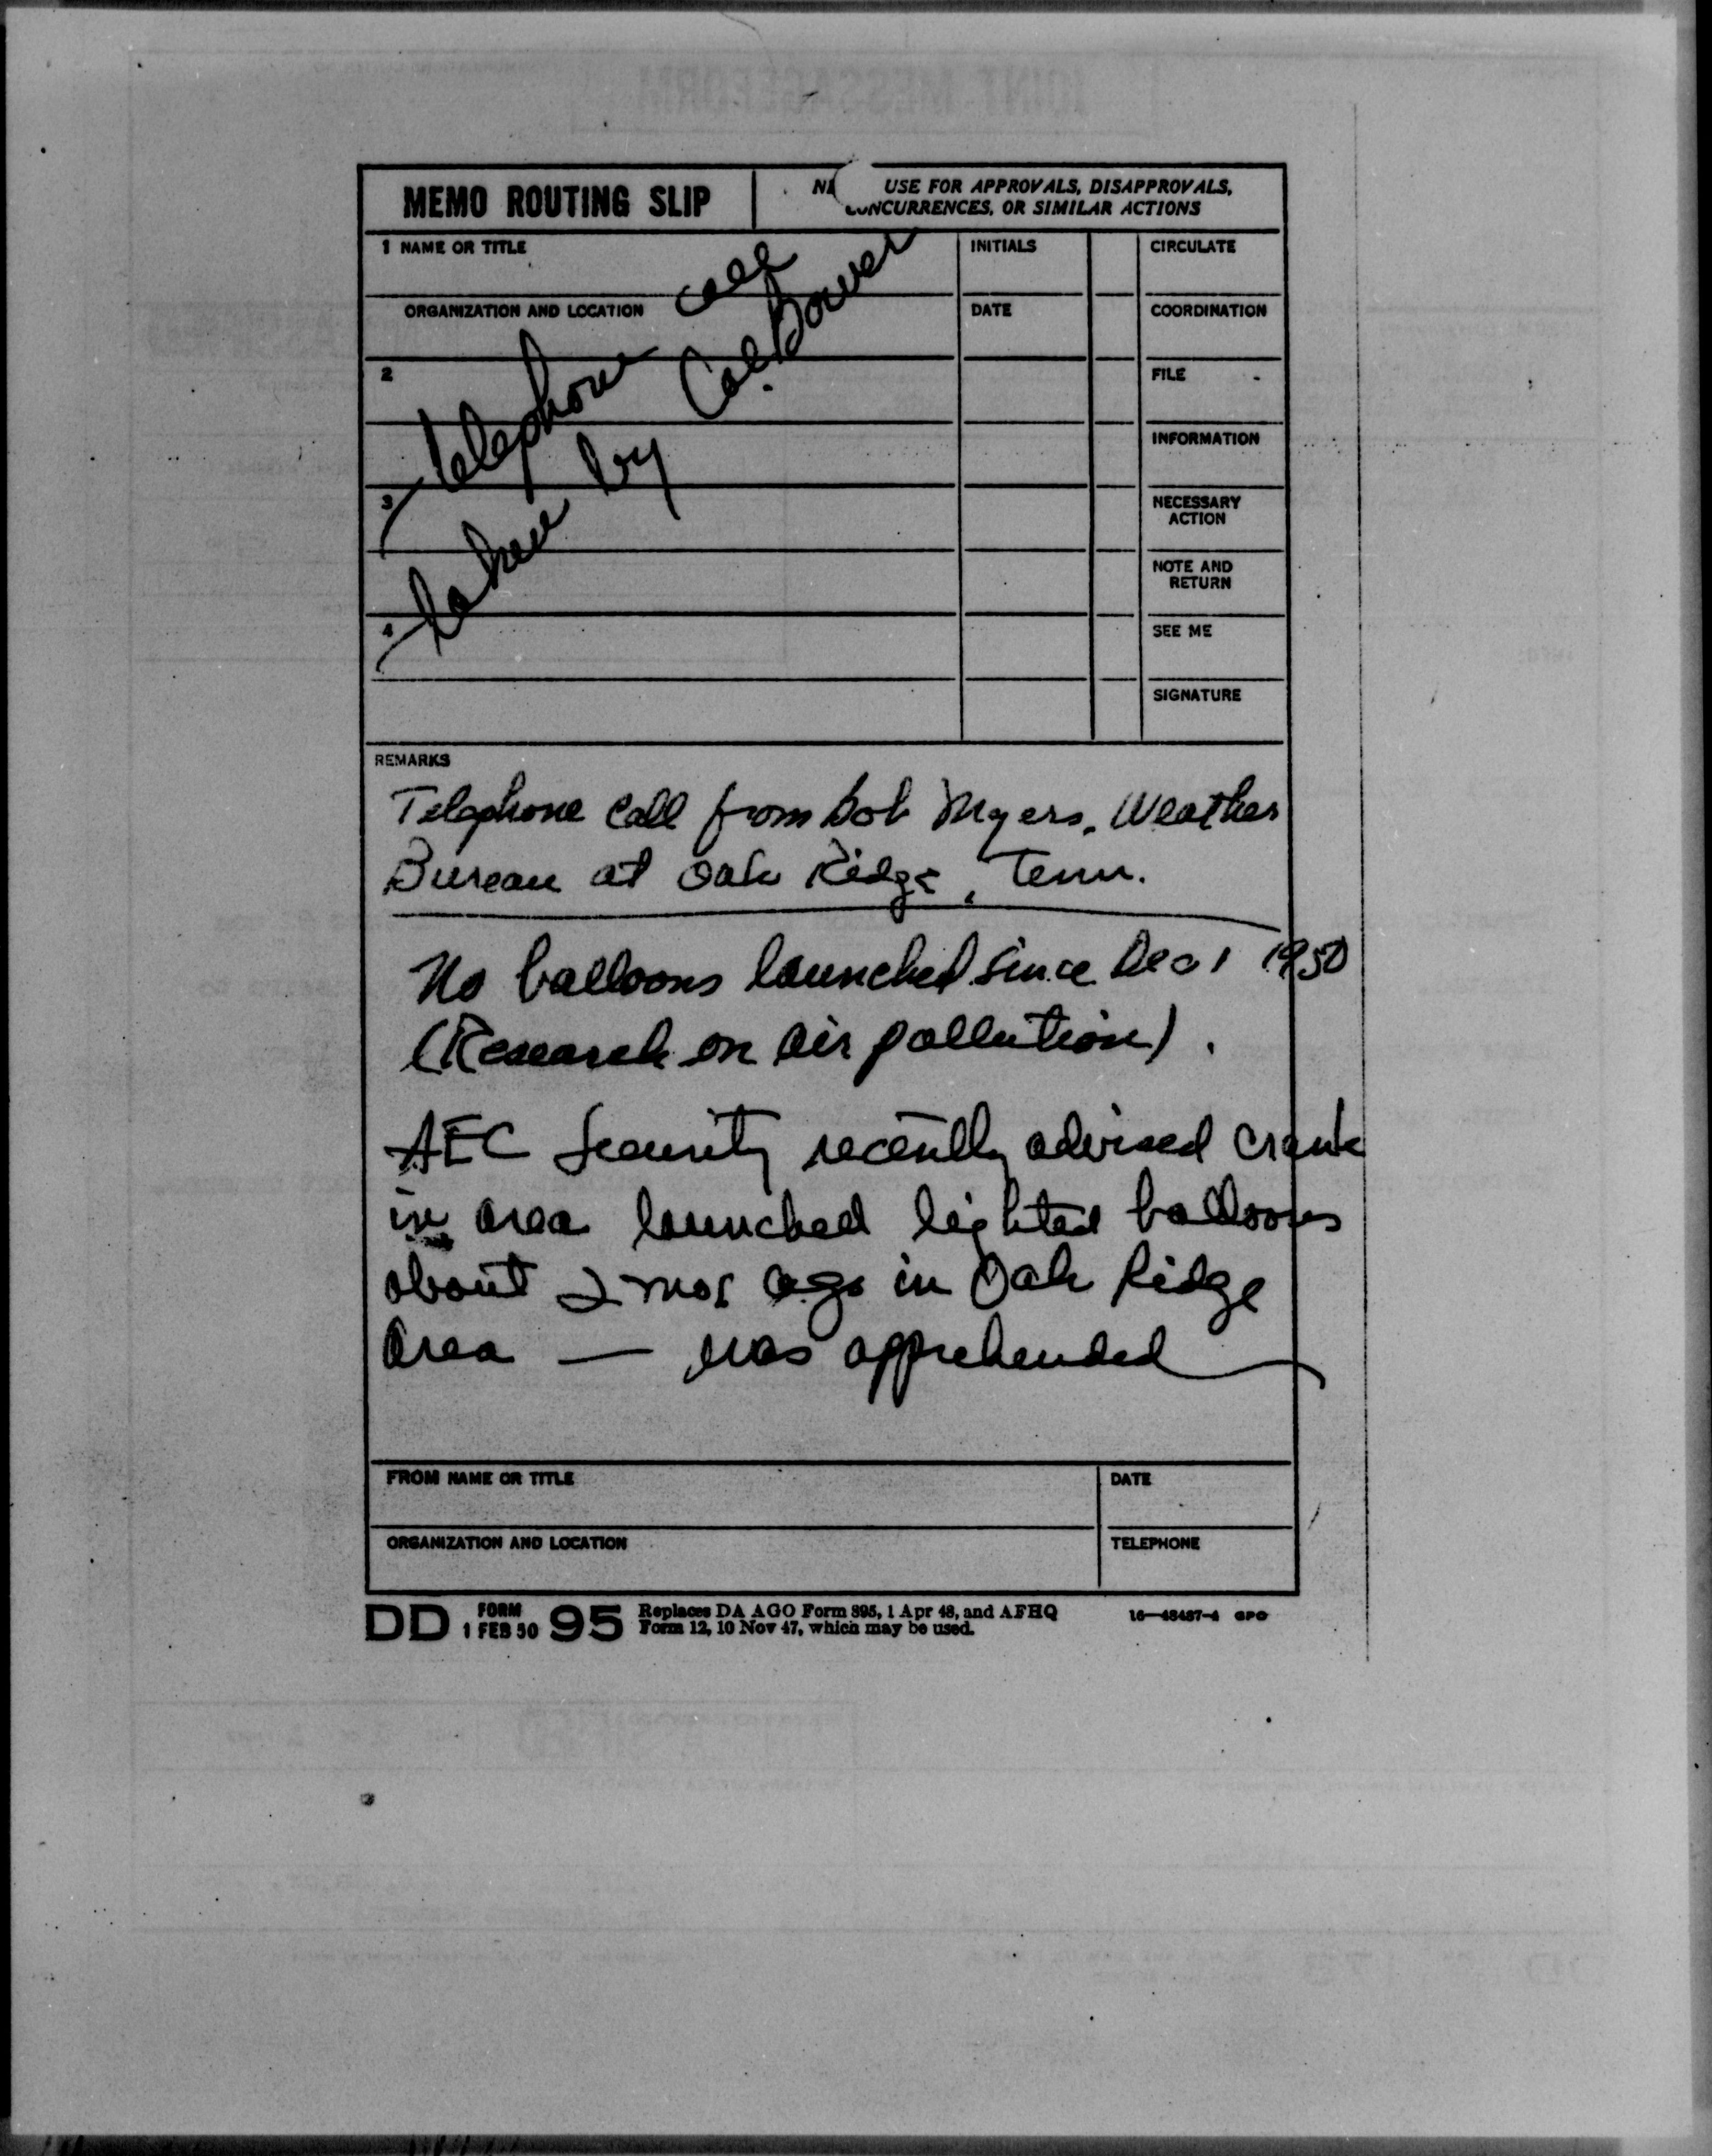 MEMO ROUTING SLIP
USE FOR APPROVALS, DISAPPROVALS,
CONCURRENCES, OR SIMILAR ACTIONS
1 NAME OR TITLE
INITIALS
CIRCULATE
ORGANIZATION AND LOCATION
DATE
COORDINATION
2
FILE
INFORMATION
3
NECESSARY
ACTION
NOTE AND
RETURN
4
SEE ME
SIGNATURE
Telephone call
taken by Col. Bower
REMARKS
Telephone Call from Bob Myers, Weather
Bureau at Oak Ridge, Tenn.
No balloons launched since Dec 1 1950
(Research on air pollution).
AEC Security recently advised crank
in area launched lighted balloons
about 2 mos ago in Oak Ridge
area — was apprehended
FROM NAME OR TITLE
DATE
ORGANIZATION AND LOCATION
TELEPHONE
DD FORM 1 FEB 50 95
Replaces DA AGO Form 895, 1 Apr 48, and AFHQ
Form 12, 10 Nov 47, which may be used.
16—48487-4 GPO